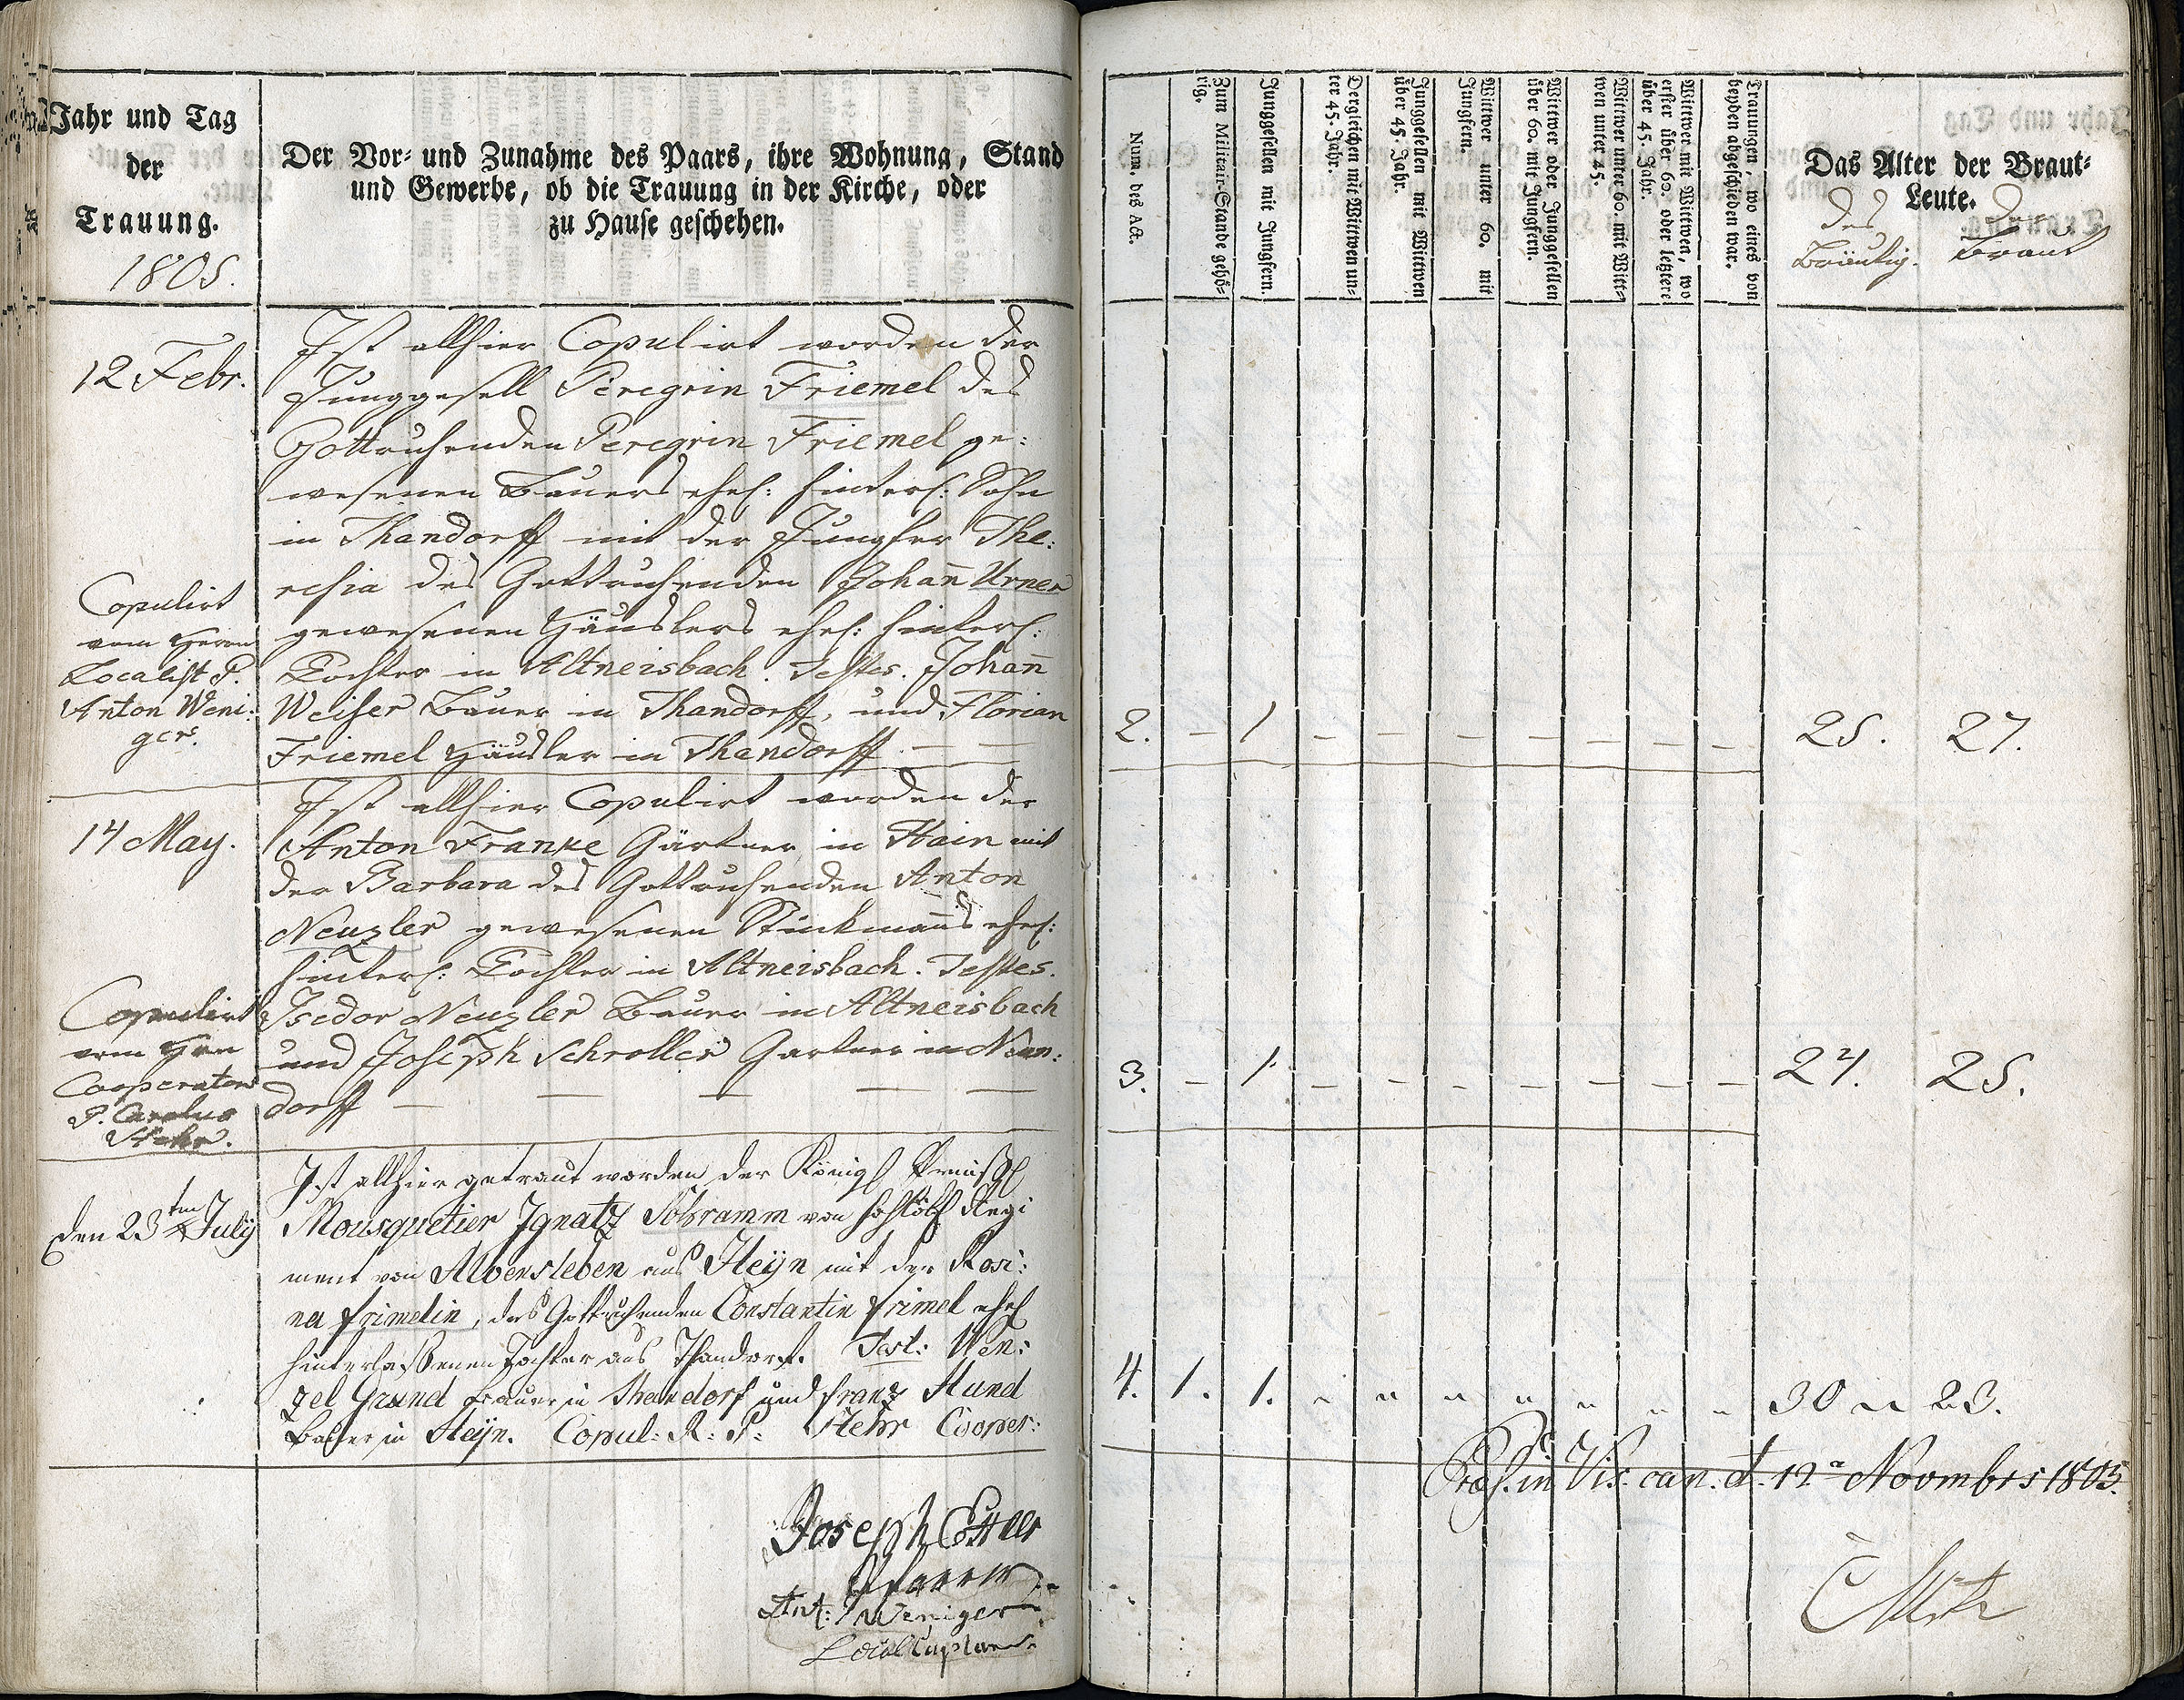 Jahr und Tag
der
Trauung.
1805.
Der Vor- und Zunahme des Paars, ihre Wohnung, Stand
und Gewerbe, ob die Trauung in der Kirche, oder
zu Hause geschehen.
12 Febr.
Ist allhier Copulirt worden der
Junggesell Peregrin Friemel des
Gottruhenden Peregrin Friemel ge:
wesenen Bauers ehel: hinterl: Sohn
in Thandorff mit der Jungfer The:
resia des Gottruhenden Johan̄ Urner
gewesenen Häuslers ehel: hinterl:
Tochter in Altneisbach. Testes. Johan̄
Weiser Bauer in Thandorff, und Florian
Friemel Häusler in Thandorff. — —
Copulirt
vom Herrn
Localist P.
Anton Weni:
ger.
14 May.
Ist allhier Copulirt worden der
Anton Franke Gärtner in Hain mit
der Barbara des Gottruhenden Anton
Neuzler gewesenen Stückman̄s ehel:
hinterl: Tochter in Altneisbach. Testes.
Isedor Neuzler Bauer in Altneisbach
und Joseph Schroller Gartner in Neun:
dorff — — — — —
Copulirt
vom Hrn
Cooperator
P. Carolus
Stehr.
den 23ten July
Ist allhier getraut worden der Königl Preußl
Mousquetier Ignatz Schramm von Regi
ment von Alvensleben aus Heÿn mit der Rosi:
na frimelin, des Gottruhenden Constantin frimel ehel
hinterlaßenen Tochter aus Thandorf. Test: Wen:
zel Grund Bauer in Thandorf und franz Hund
Bauer in Heÿn. Copul: R: P: Stehr Cooper:
Joseph
Pfarrer
Ant: Weniger
Local Caplan
Num. des Act.
Zum Militair-Stande gehö-
rig.
Junggesellen mit Jungfern.
Dergleichen mit Wittwen un-
ter 45. Jahr.
Junggesellen mit Wittwen
über 45. Jahr.
Wittwer unter 60. mit
Jungfern.
Wittwer oder Junggesellen
über 60. mit Jungfern.
Wittwer unter 60. mit Witt-
wen unter 45.
Wittwer mit Wittwen, wo
erster über 60. oder letztere
über 45. Jahr.
Trauungen, wo eines von
beyden abgeschieden war.
Das Alter der Braut-
Leute.
des Bräutig.
der Braut
2. – 1 – – – – – – – 25. 27.
3. – 1. – – – – – – – 24. 25.
4. 1. 1. " " " " " " " 30 " 23.
in Vis. can. d. 12a Novmbrs 1805.